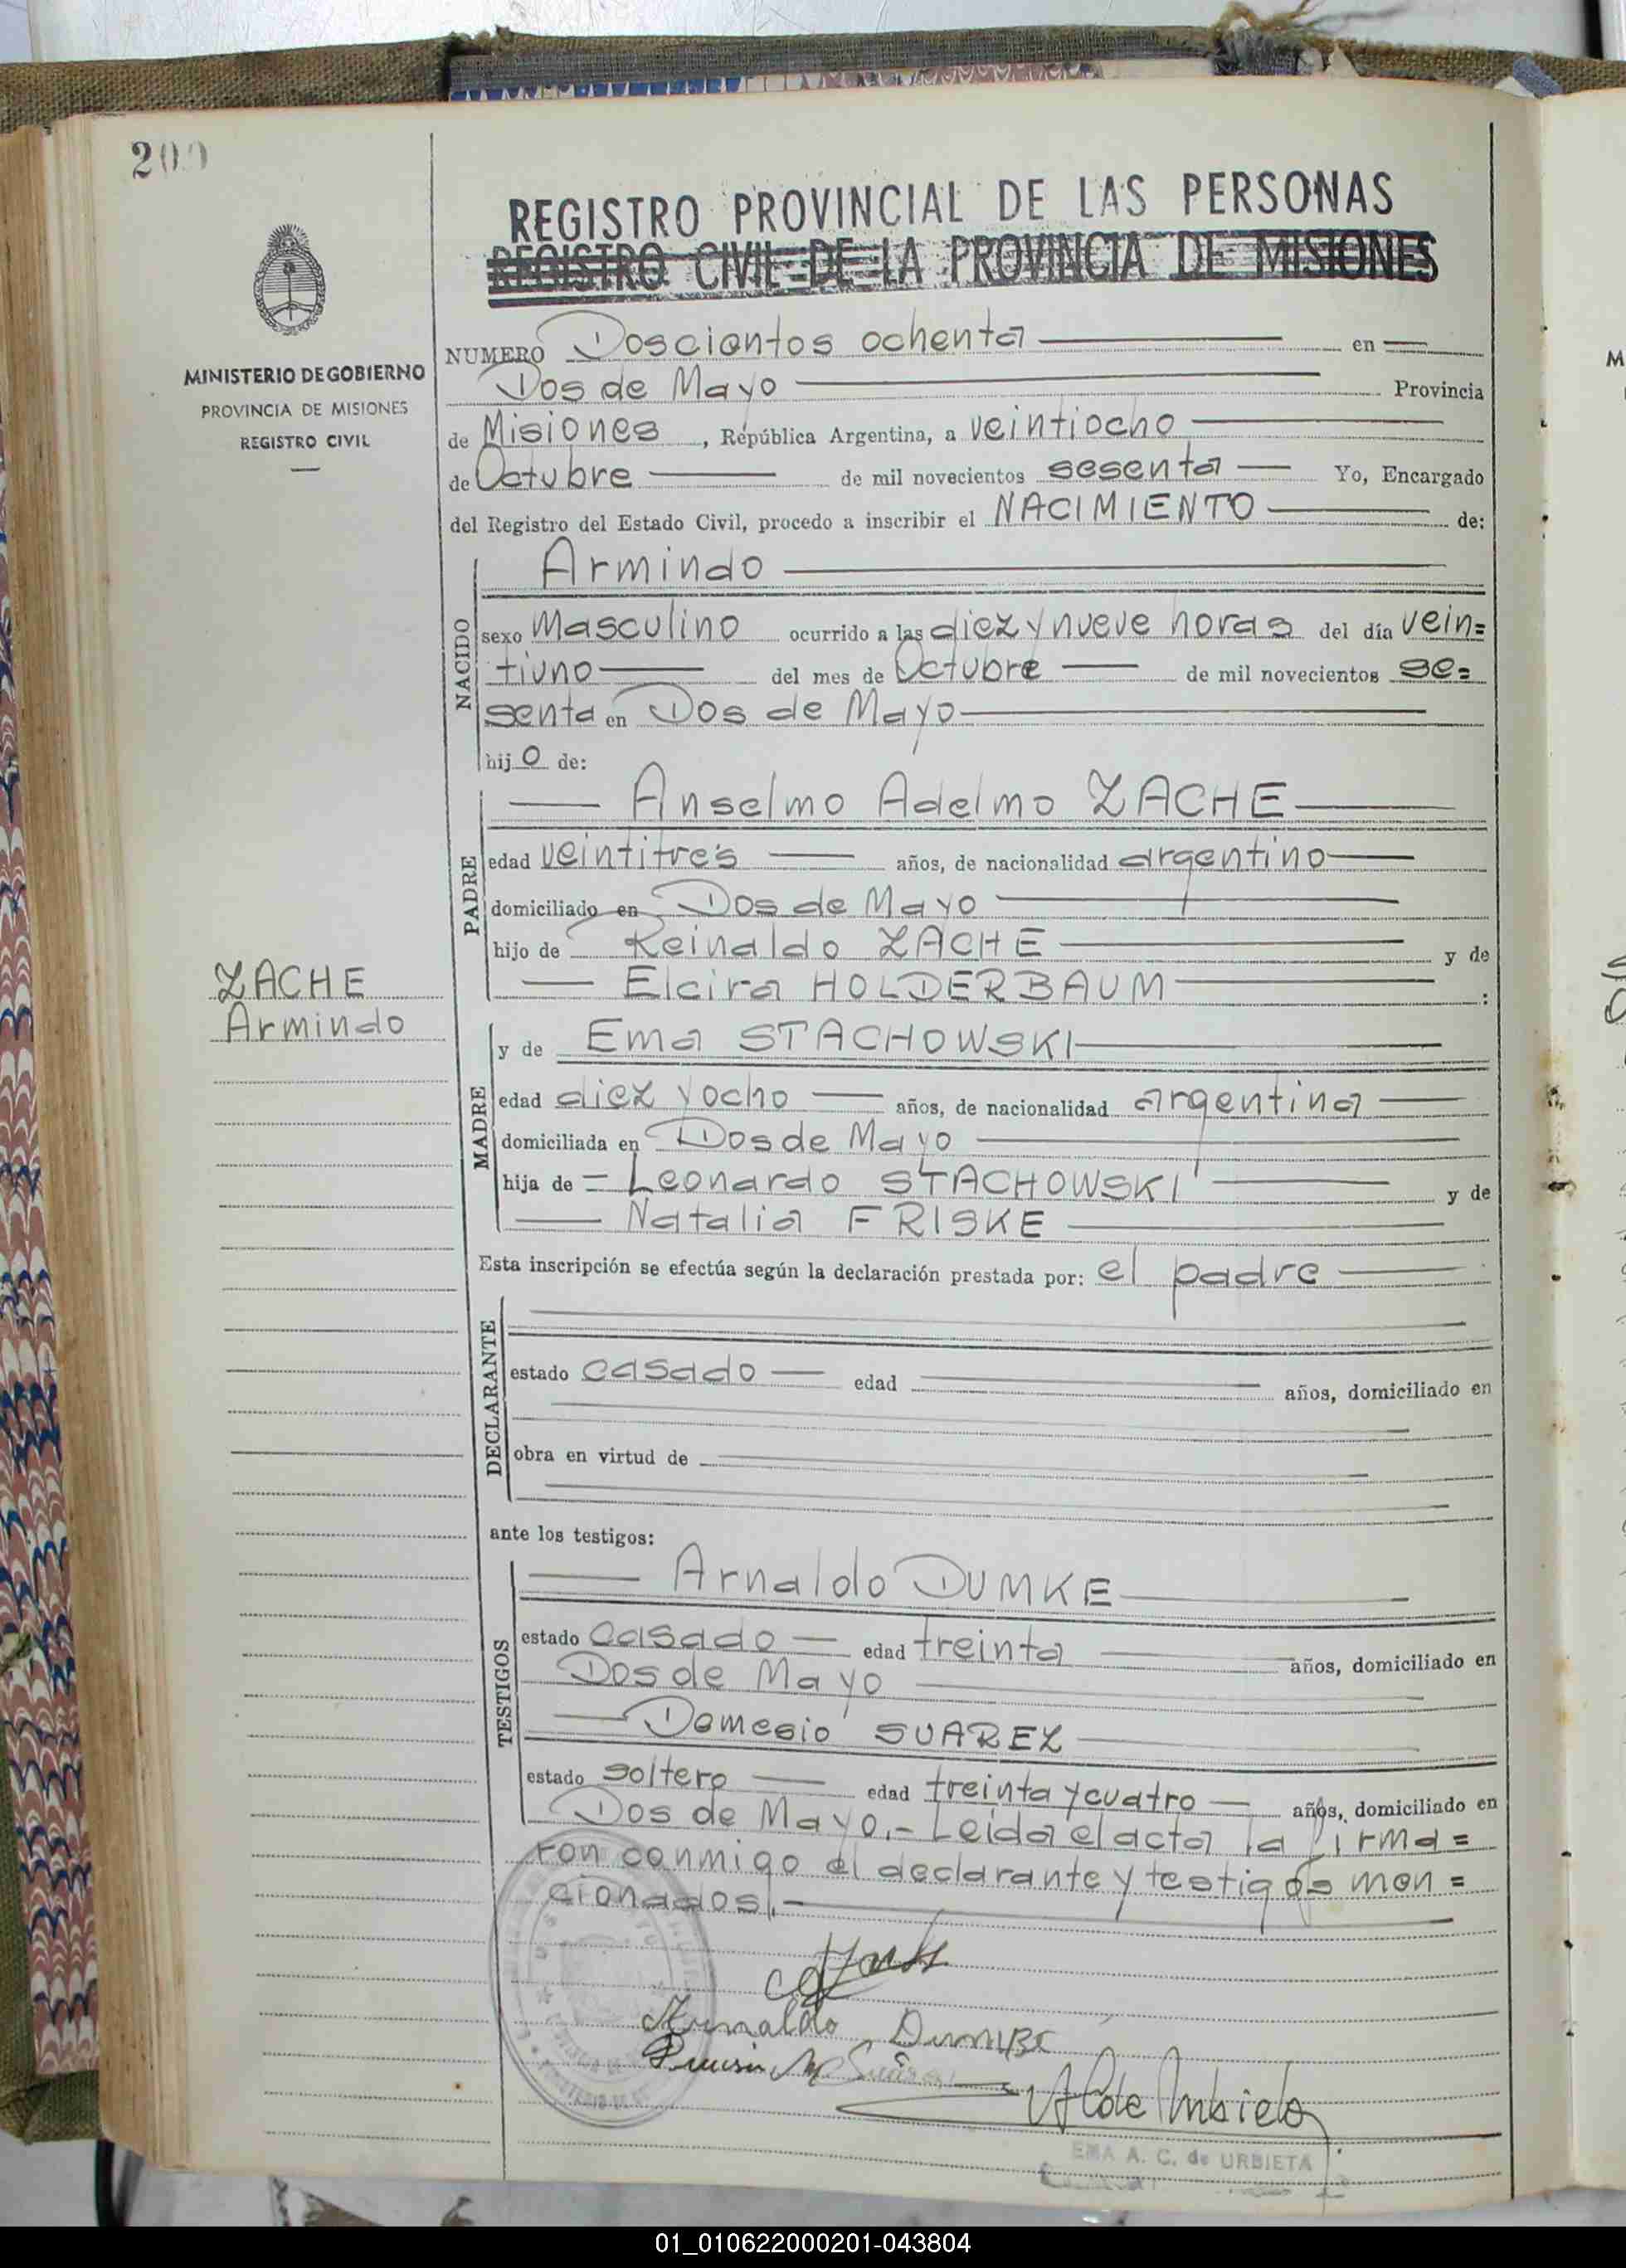 REGISTRO PROVINCIAL DE LAS PERSONAS
REGISTRO CIVIL DE LA PROVINCIA DE MISIONES
MINISTERIO DE GOBIERNO
PROVINCIA DE MISIONES
REGISTRO CIVIL
NUMERO Doscientos ochenta en
Dos de Mayo Provincia
de Misiones, República Argentina, a veintiocho
de Octubre de mil novecientos sesenta Yo, Encargado
del Registro del Estado Civil, procedo a inscribir el NACIMIENTO de:
NACIDO
Armindo
sexo Masculino ocurrido a las diez y nueve horas del día vein=
tiuno del mes de Octubre de mil novecientos se=
senta en Dos de Mayo
hijo de:
PADRE
Anselmo Adelmo ZACHE
edad veintitrés años, de nacionalidad argentino
domiciliado en Dos de Mayo
hijo de Reinaldo ZACHE y de
Elcira HOLDERBAUM :
ZACHE
Armindo
MADRE
y de Ema STACHOWSKI
edad diez y ocho años, de nacionalidad argentina
domiciliada en Dos de Mayo
hija de = Leonardo STACHOWSKI y de
Natalia FRISKE
Esta inscripción se efectúa según la declaración prestada por: el padre
DECLARANTE
estado casado edad años, domiciliado en
obra en virtud de
ante los testigos:
TESTIGOS
Arnaldo DUMKE
estado casado edad treinta años, domiciliado en
Dos de Mayo
Demesio SUAREZ
estado soltero edad treinta y cuatro años, domiciliado en
Dos de Mayo.- Leída el acta la firma=
ron conmigo el declarante y testigos men=
cionados.-
Arnaldo
Suárez
EMA A. C. de URBIETA
01_010622000201-043804